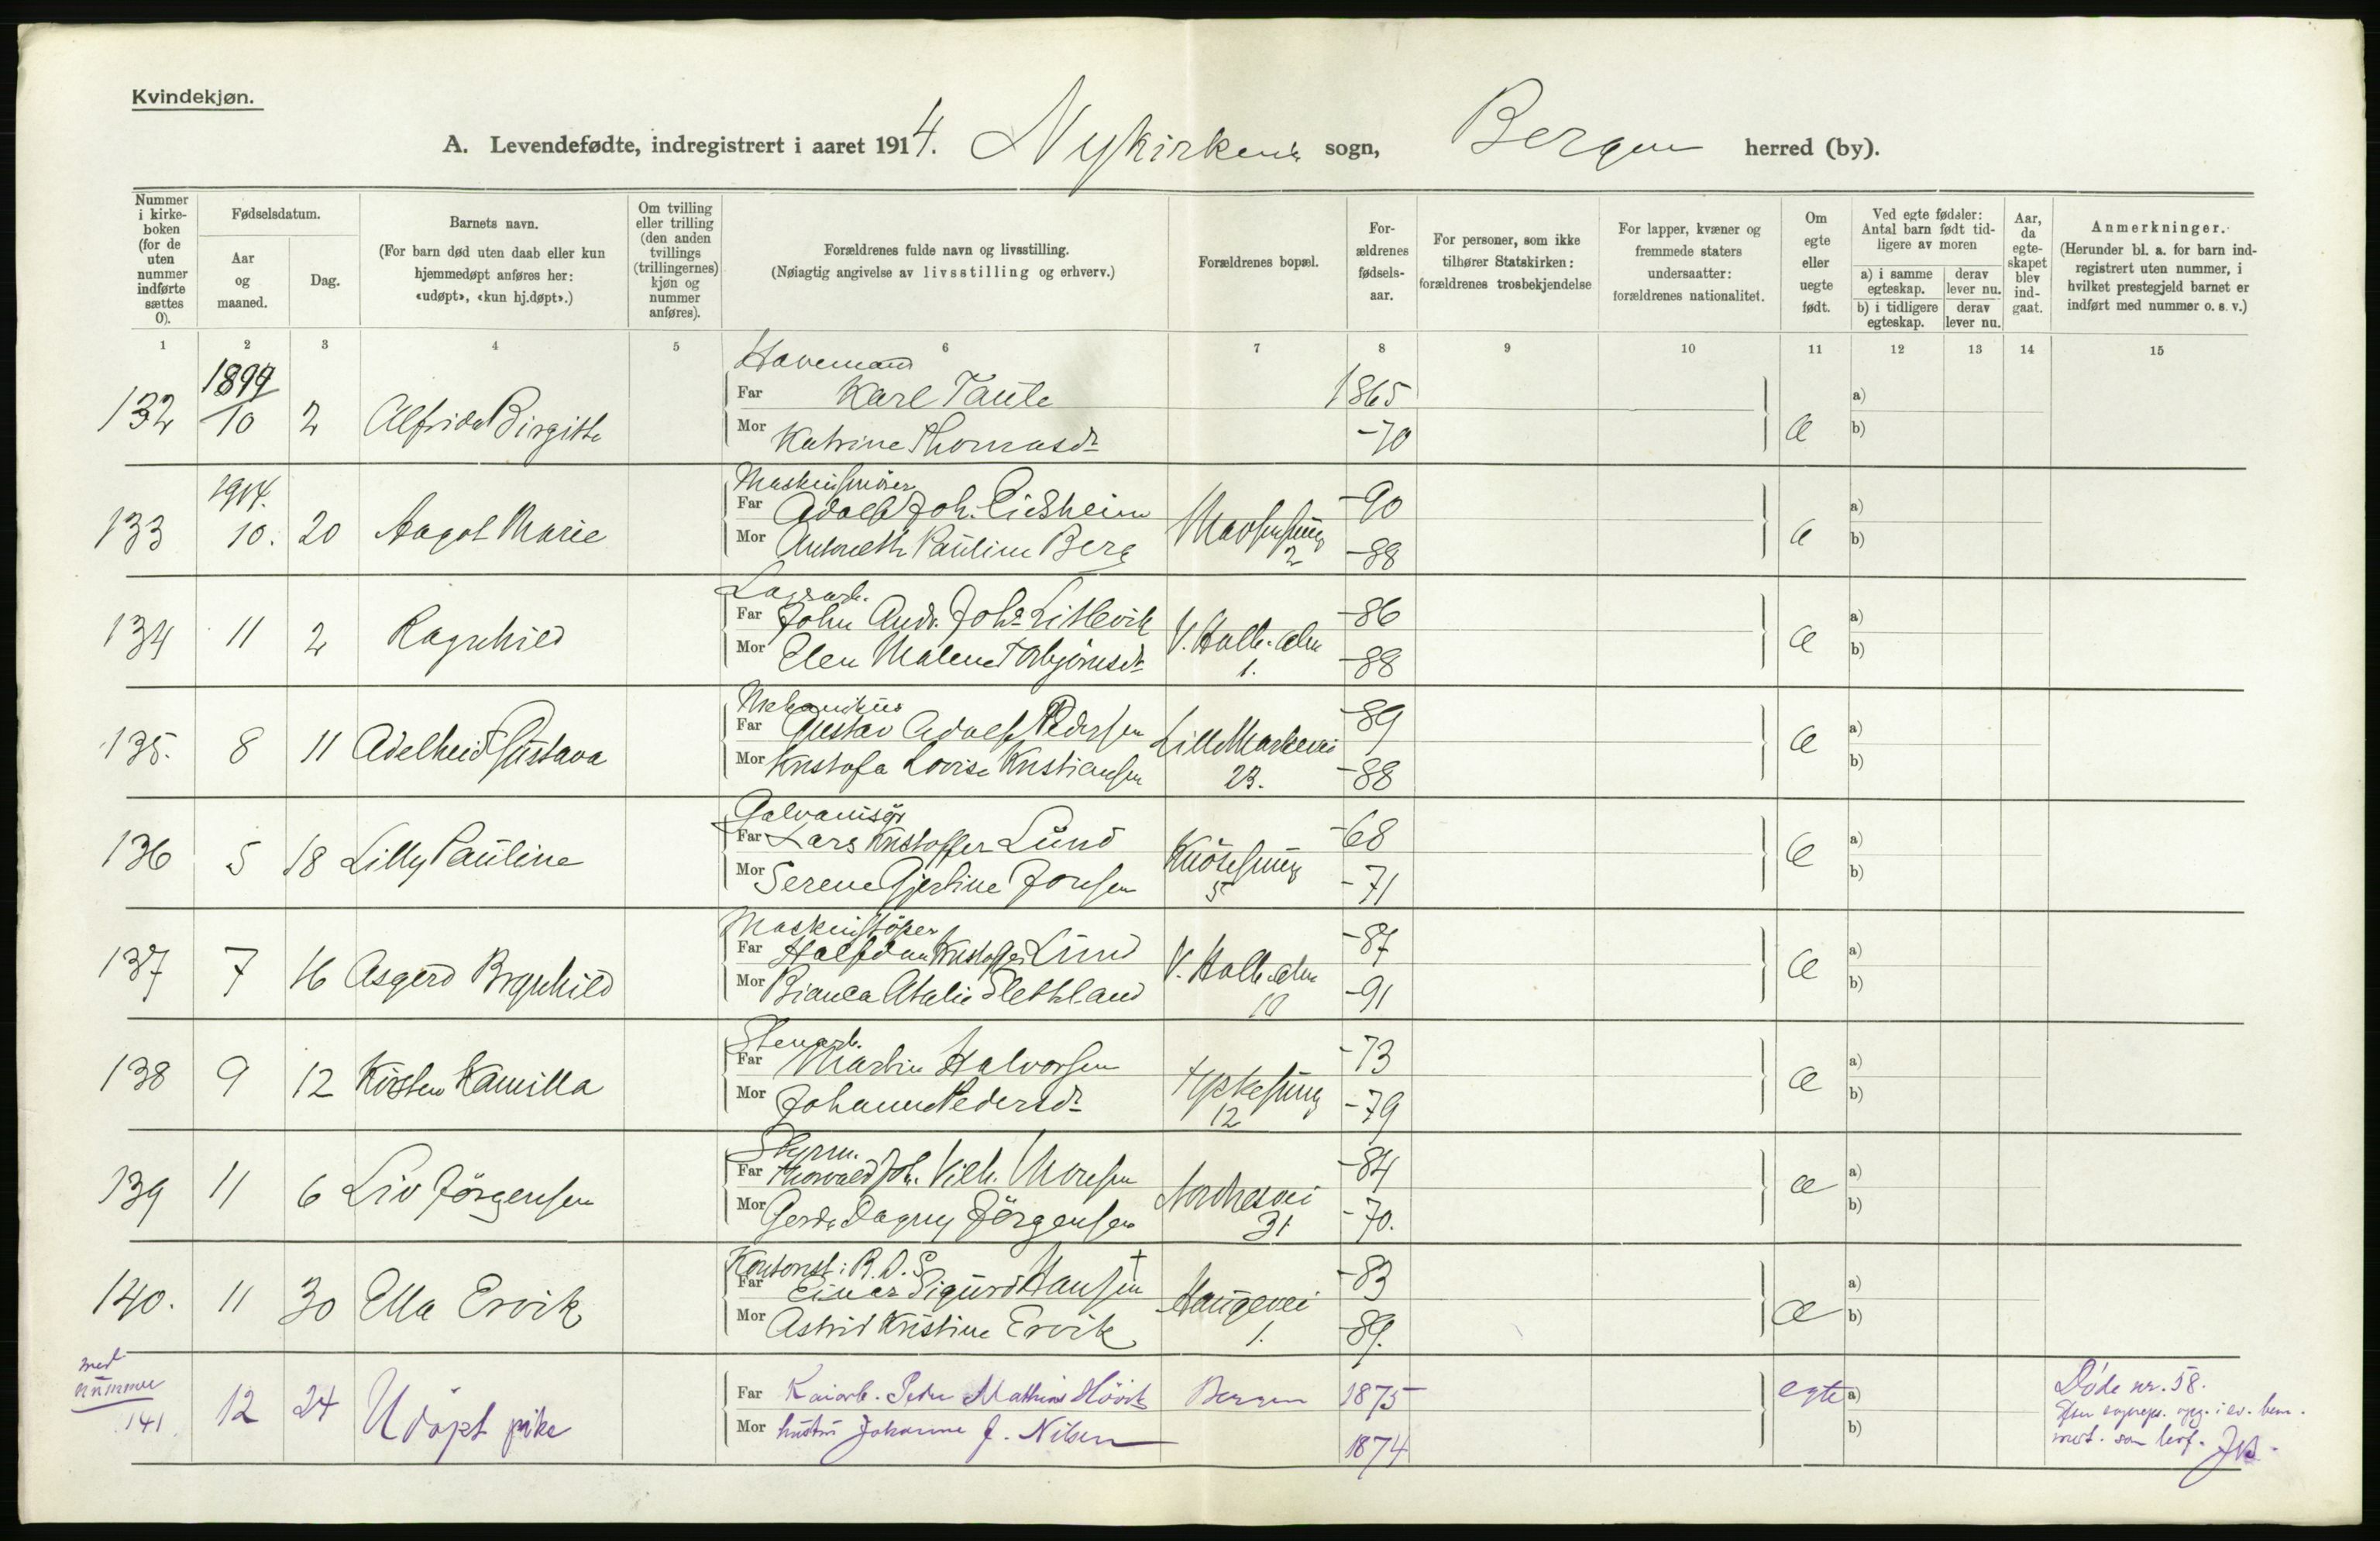 Kvindekjøn.
A. Levendefødte, indregistrert i aaret 1914. Nykirkens sogn, Bergen herred (by).
Nummer i kirkeboken (for de uten nummer indførte sættes 0).
Fødselsdatum.
Aar og maaned.
Dag.
Barnets navn.
(For barn død uten daab eller kun hjemmedøpt anføres her: «udøpt», «kun hj.døpt».)
Om tvilling eller trilling (den anden tvillings (trillingernes) kjøn og nummer anføres).
Forældrenes fulde navn og livsstilling.
(Nøiagtig angivelse av livsstilling og erhverv.)
Forældrenes bopæl.
Forældrenes fødselsaar.
For personer, som ikke tilhører Statskirken: forældrenes trosbekjendelse
For lapper, kvæner og fremmede staters undersaatter: forældrenes nationalitet.
Om egte eller uegte født.
Ved egte fødsler: Antal barn født tidligere av moren
a) i samme egteskap. derav lever nu.
b) i tidligere egteskap. derav lever nu.
Aar, da egteskapet blev indgaat.
Anmerkninger.
(Herunder bl. a. for barn indregistrert uten nummer, i hvilket prestegjeld barnet er indført med nummer o. s. v.)
1 2 3 4 5 6 7 8 9 10 11 12 13 14 15
Havemand
1899
132 10 2 Alfrida Birgitte
Far Karl Taule 1865
Mor Katrine Thomasdr -70
a) b)
1914.
133 10. 20 Aagot Marie
Far Adolf Joh. -90
Mor Pauline Berg 2 -88
a) b)
134 11 2 Ragnhild
Far John Andr. Johs Litlevik -86
Mor Elen Malene Torbjørnsdr 1. -88
a) b)
Mekanikus
135. 8 11 Adelheid Gustava
Far Gustav Adolf Pedersen Lille Markevei -89
Mor Kristofa Lovise Kristiansen 23. -88
a) b)
Galvanisør
136 5 18 Lilly Pauline
Far Lars Kristoffer Lund Knøsesmug -68
Mor Serene Gjertine Jonsen 5 -71
a) b)
137 7 16 Asgerd Bergnhild
Far Halfdan Kristoffer Lund -87
Mor Bianca Atalie Slethland 10 -91
a) b)
Stenarb.
138 9 12 Kirsten Kamilla
Far Martin Halvorsen -73
Mor Johanne Pedersdr 12 -79
a) b)
Styrm.
139 11 6 Liv Jörgensen
Far Thorvald Joh. Vilh. -84
Mor Gerda Dagny Jörgensen 31 -70.
a) b)
Kontorist: B. D. S.
140. 11 30 Ella Ervik
Far Einar Sigurd Hansen † Haugevei -83
Mor Astrid Kristine Ervik 1. -89.
a) b)
med nummer
141 12 24 Udøpt pike
Far Kaiarb. Peder Mathias Bergen 1875 egte a)
Mor hustru Johanne J. Nilsen 1874 b)
Døde nr. 58.